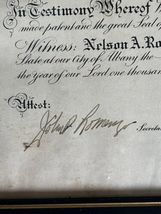 In Testimony Whereof
made patent and the great Seal of
Witness: Nelson A. Ro
State at our City of Albany the
the year of our Lord one thousand
Attest:
Secreta